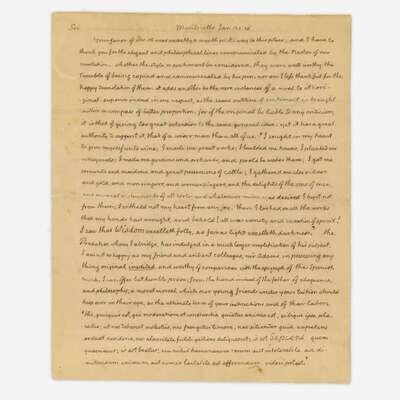 Sir Monticello Jan. 31. 26
Your favor of Dec. was exactly a month on it's way to this place; and I have to
thank you for the elegant and philosophical lines communicated by the Nestor of our
revolution. whether the style or sentiment be considered, they were well worthy the
trouble of being copied and communicated by his pen. nor am I less thankful for the
happy translation of them. it adds another to the rare instances of a rival to it's ori-
ginal: superior indeed in one respect, as the same outline of sentiment is brought
within a compass of better proportion. for if the original be liable to any criticism,
it is that of giving too great extension to the same general idea. yet it has a great
authority to support it, that of a wiser man than all of us. 'I sought in my heart
to give myself unto wine; I made me great works; I builded me houses; I planted me
vineyards; I made me gardens and orchards, and pools to water them; I got me
servants and maidens, and great possessions of cattle; I gathered me also silver
and gold, and men singers, and women singers, and the delights of the sons of men,
and musical instruments of all sorts; and whatsoever mine eyes desired I kept not
from them; I withheld not my heart from any joy. then I looked on all the works
that my hands had wrought, and behold! all was vanity and vexation of spirit!
I saw that Wisdom excelleth folly, as far as light excelleth darkness.' the
Preacher, whom I abridge, has indulged in a much larger amplification of his subject.
I am not so happy as my friend and antient colleague, mr Adams, in possessing any
thing original, inedited, and worthy of comparison with the epigraph of the Spanish
monk. I can offer but humble prose, from the hand indeed of the father of eloquence
and philosophy; a moral morsel, which our young friends under your tuition should
keep ever in their eye, as the ultimate term of your instructions and of their labors.
'hic, quisquis est, qui moderatione et constantia quietus animo est, sibique ipse pla-
catus; ut nec tabescat molestiis, nec frangatur timore, nec sitienter quid expetens
ardeat desiderio, nec alacritate futili gestiens deliquescat; is est sapiens, quem
quaerimus; is est beatus; cui nihil humanarum rerum aut intolerabile ad di-
mittendum animum aut nimis laetabile ad efferendum videri potest.'